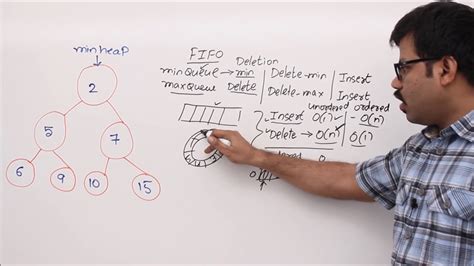 min heap
2
5
7
6
9
10
15
FIFO
Deletion
minQueue → min
Delete-min
Insert
maxQueue Delete
Delete-max
Insert
unordered ordered
Insert O(1) - O(n)
Delete → O(n) O(1)
0